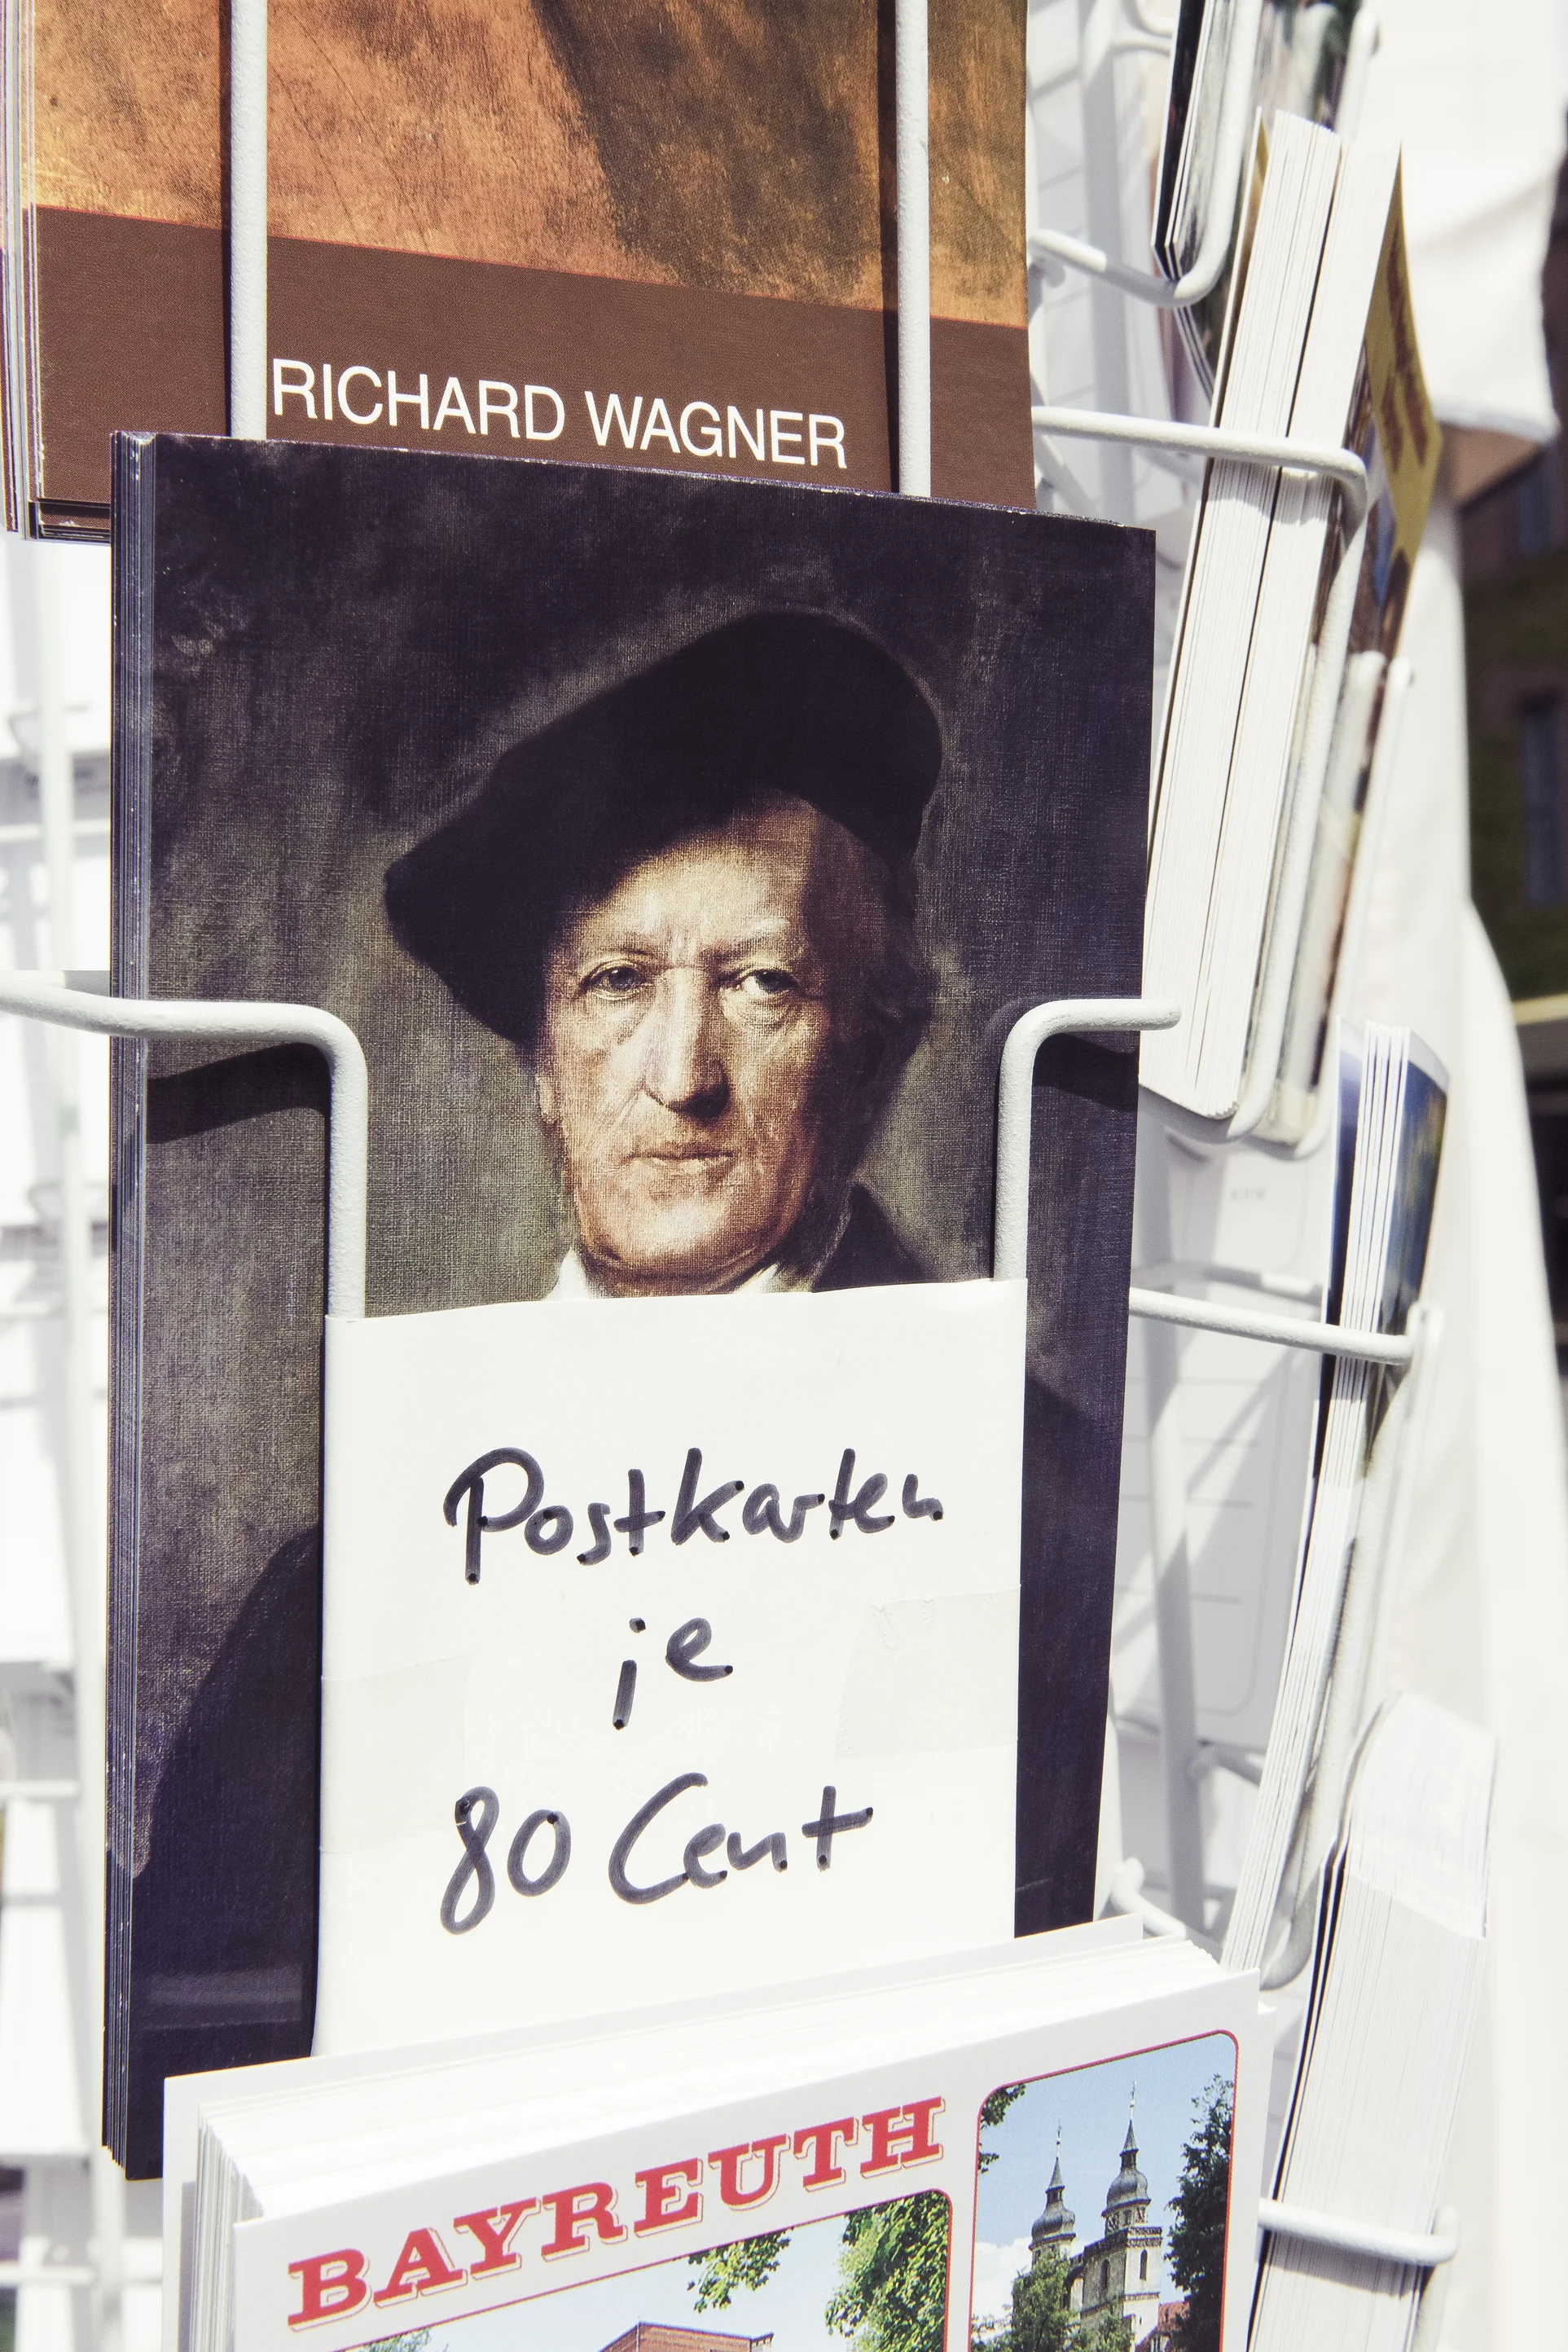 RICHARD WAGNER
Postkarten
je
80 Cent
BAYREUTH